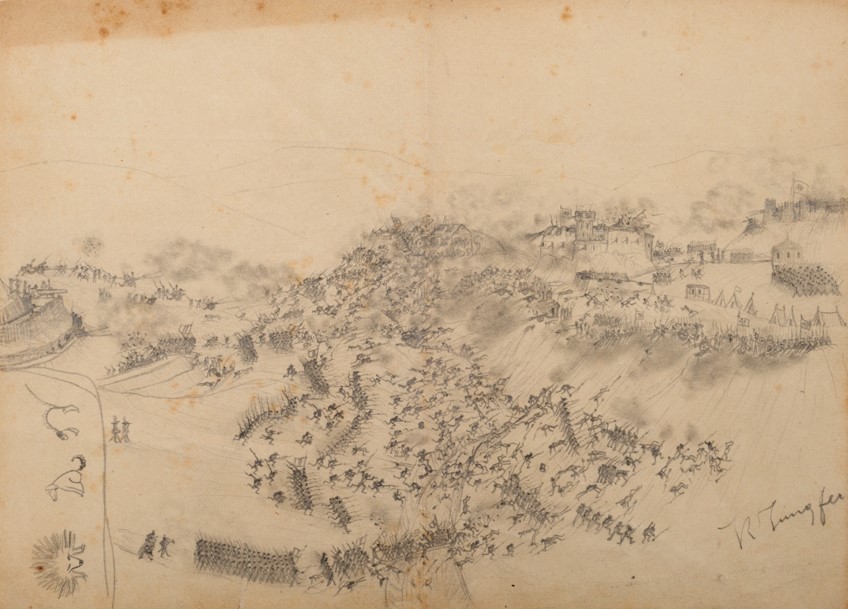 R Jungfer